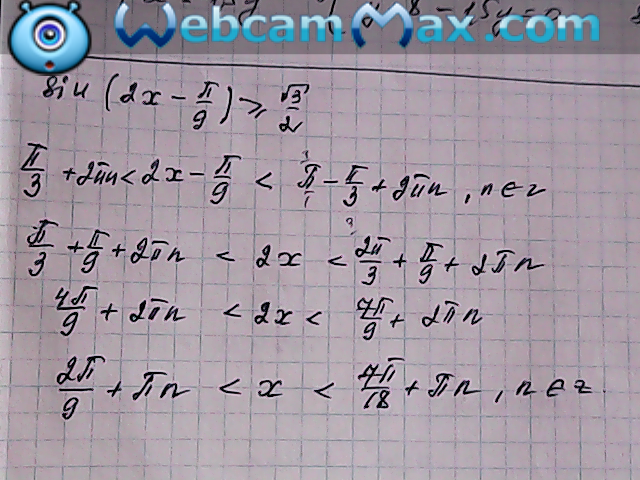 WebcamMax.com
sin (2x - π/9) ⩾ √3/2
π/3 + 2πn < 2x - π/9 < π - π/3 + 2πn , n ∈ z
π/3 + π/9 + 2πn < 2x < 2π/3 + π/9 + 2πn
4π/9 + 2πn < 2x < 7π/9 + 2πn
2π/9 + πn < x < 7π/18 + πn , n ∈ z